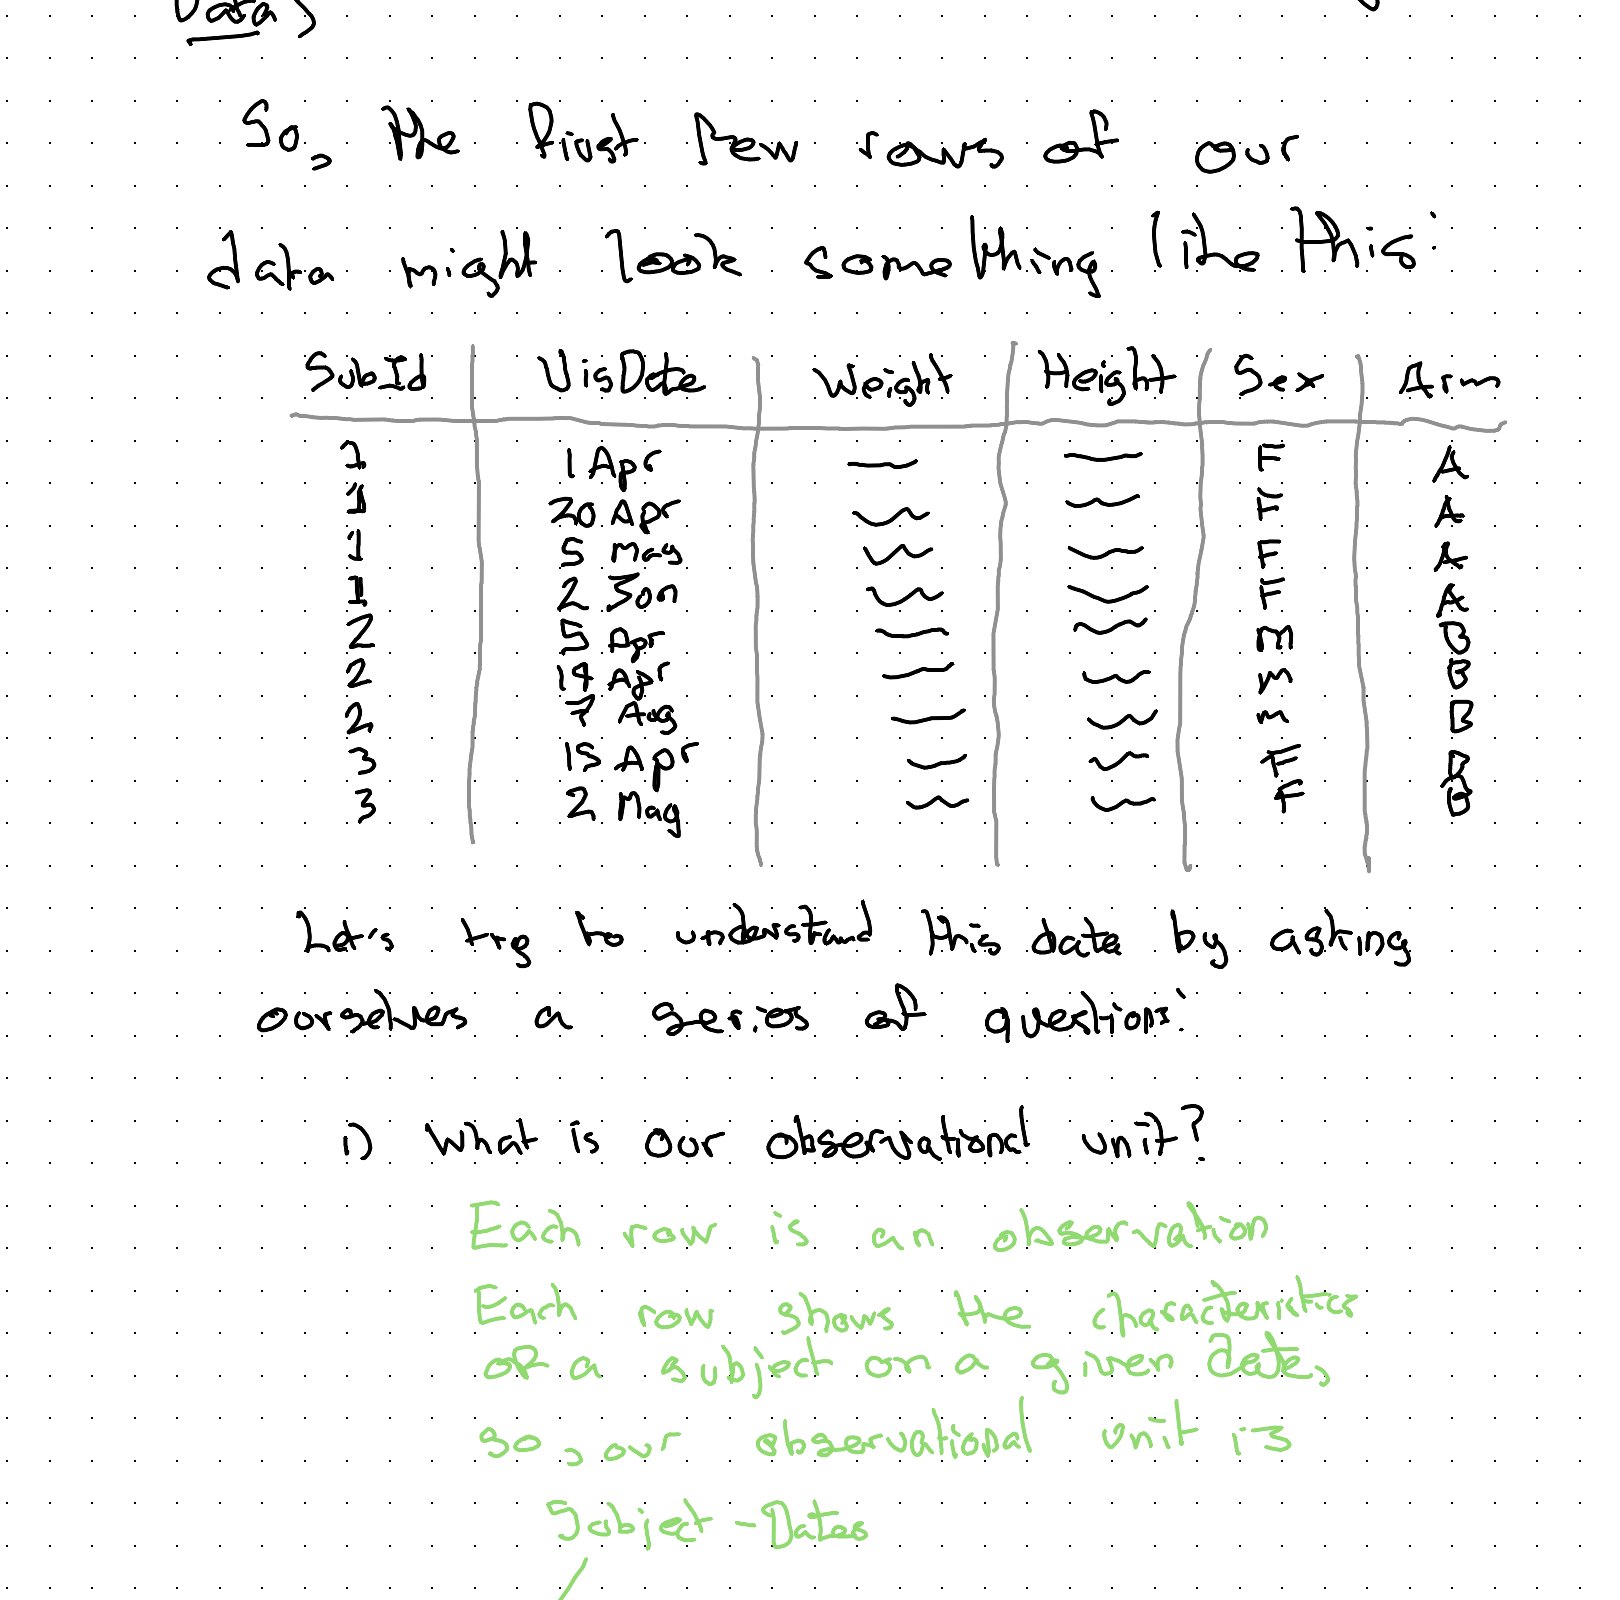 Data)
So, the first few rows of our
data might look something like this:
SubId VisDate Weight Height Sex Arm
1 1 Apr F A
1 20 Apr F A
1 5 May F A
1 2 Jun F A
2 5 Apr M B
2 14 Apr M B
2 7 Aug M B
3 15 Apr F B
3 2 May F B
Let's try to understand this data by asking
ourselves a series of questions:
1) What is our observational unit?
Each row is an observation
Each row shows the characteristics
of a subject on a given date,
so, our observational unit is
Subject-Dates